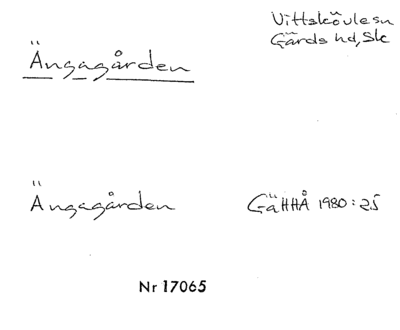 Vittskövle sn
Ängagården
Gärds hd, Sk
Ängagården
GäHHÅ 1980:25
Nr 17065